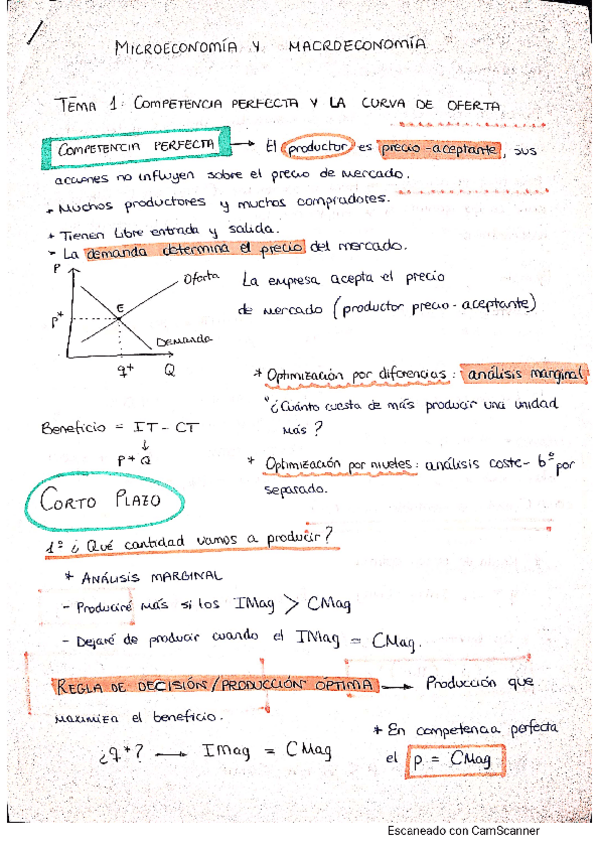 MICROECONOMÍA Y MACROECONOMÍA
TEMA 1: COMPETENCIA PERFECTA Y LA CURVA DE OFERTA
COMPETENCIA PERFECTA → El productor es precio-aceptante, sus
acciones no influyen sobre el precio de mercado.
* Muchos productores y muchos compradores.
* Tienen libre entrada y salida.
* La demanda determina el precio del mercado.
P
Oferta
E
P*
Demanda
q* Q
La empresa acepta el precio
de mercado (productor precio-aceptante)
* Optimización por diferencias: análisis marginal
¿Cuánto cuesta de más producir una unidad
más?
Beneficio = IT - CT
↓
P * Q
* Optimización por niveles: análisis coste- bº por
separado.
CORTO PLAZO
1º ¿Qué cantidad vamos a producir?
* ANÁLISIS MARGINAL
- Produciré más si los IMag > CMag
- Dejaré de producir cuando el IMag = CMag.
REGLA DE DECISIÓN/PRODUCCIÓN ÓPTIMA → Producción que
maximiza el beneficio.
¿q*? → IMag = CMag
* En competencia perfecta
el p = CMag
Escaneado con CamScanner